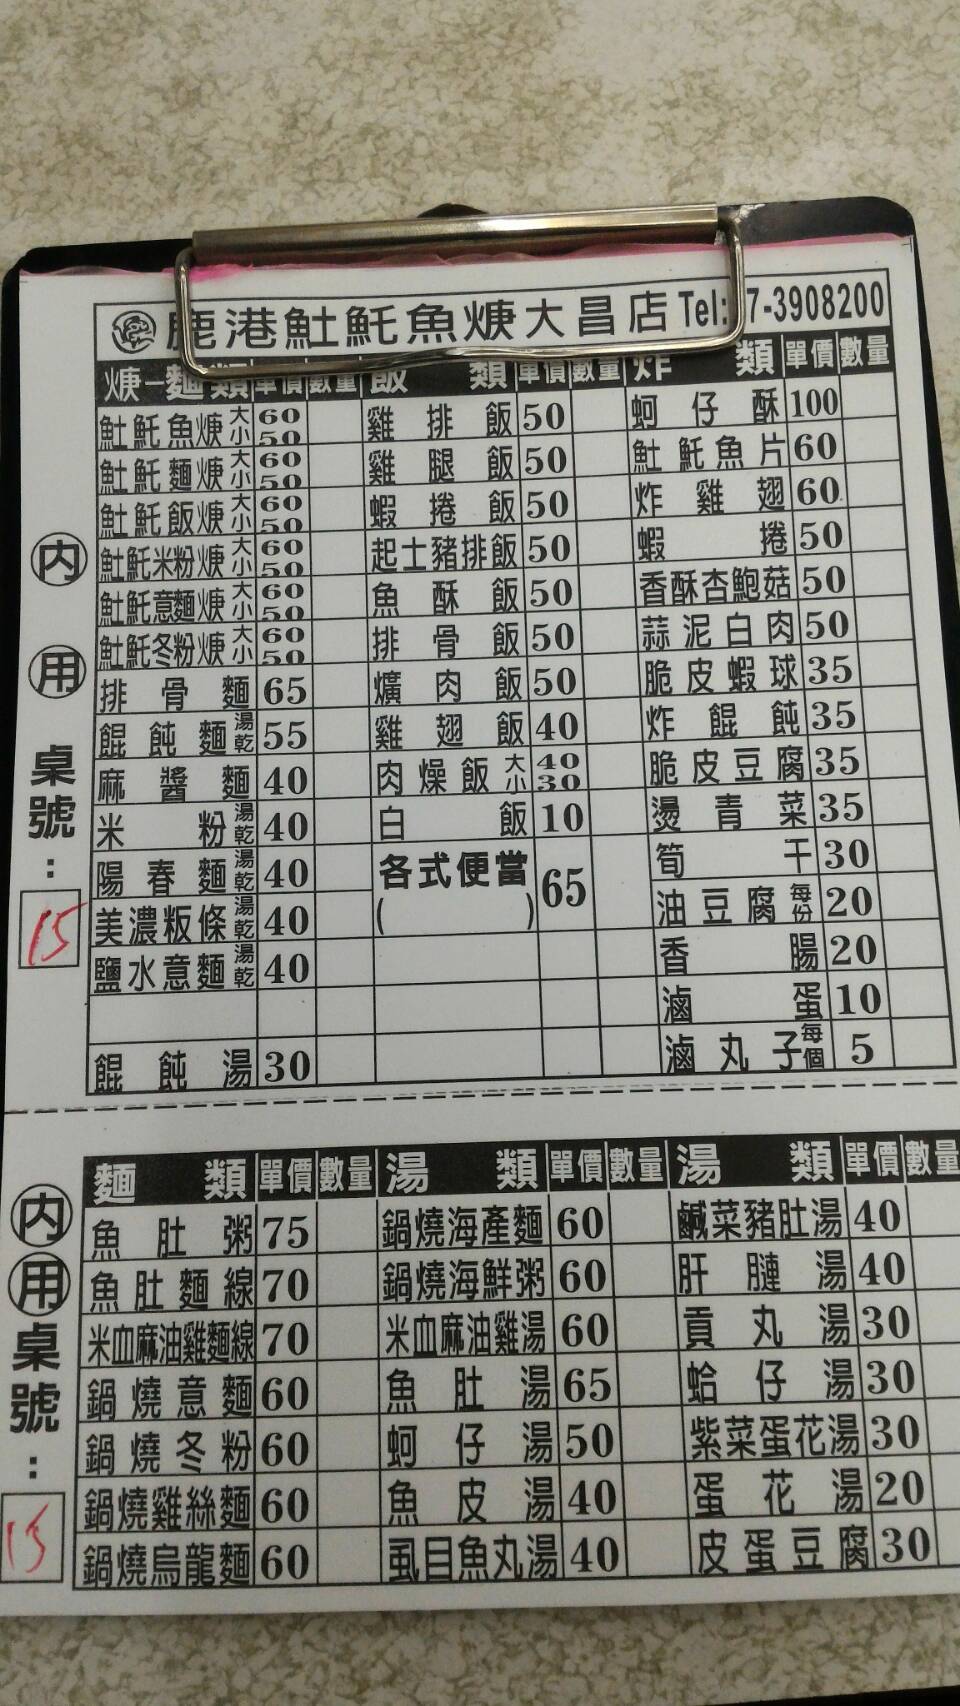 鹿港𩵚魠魚焿大昌店 Tel: 7-3908200
焿一麵類 單價 數量 飯類 單價 數量 炸類 單價 數量
𩵚魠魚焿 大小 60 50 雞排飯 50 蚵仔酥 100
𩵚魠麵焿 大小 60 50 雞腿飯 50 𩵚魠魚片 60
𩵚魠飯焿 大小 60 50 蝦捲飯 50 炸雞翅 60
𩵚魠米粉焿 大小 60 50 起士豬排飯 50 蝦捲 50
𩵚魠意麵焿 大小 60 50 魚酥飯 50 香酥杏鮑菇 50
𩵚魠冬粉焿 大小 60 50 排骨飯 50 蒜泥白肉 50
排骨麵 65 爌肉飯 50 脆皮蝦球 35
餛飩麵 湯乾 55 雞翅飯 40 炸餛飩 35
麻醬麵 40 肉燥飯 大小 40 30 脆皮豆腐 35
米粉 湯乾 40 白飯 10 燙青菜 35
陽春麵 湯乾 40 各式便當 ( ) 65 筍干 30
美濃粄條 湯乾 40 油豆腐 每份 20
鹽水意麵 湯乾 40 香腸 20
滷蛋 10
餛飩湯 30 滷丸子 每個 5
內用
桌號:
15
麵類 單價 數量 湯類 單價 數量 湯類 單價 數量
魚肚粥 75 鍋燒海產麵 60 鹹菜豬肚湯 40
魚肚麵線 70 鍋燒海鮮粥 60 肝膁湯 40
米血麻油雞麵線 70 米血麻油雞湯 60 貢丸湯 30
鍋燒意麵 60 魚肚湯 65 蛤仔湯 30
鍋燒冬粉 60 蚵仔湯 50 紫菜蛋花湯 30
鍋燒雞絲麵 60 魚皮湯 40 蛋花湯 20
鍋燒烏龍麵 60 虱目魚丸湯 40 皮蛋豆腐 30
內用
桌號:
15